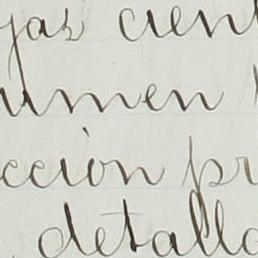 jas cient
umen
cción pr
detalla